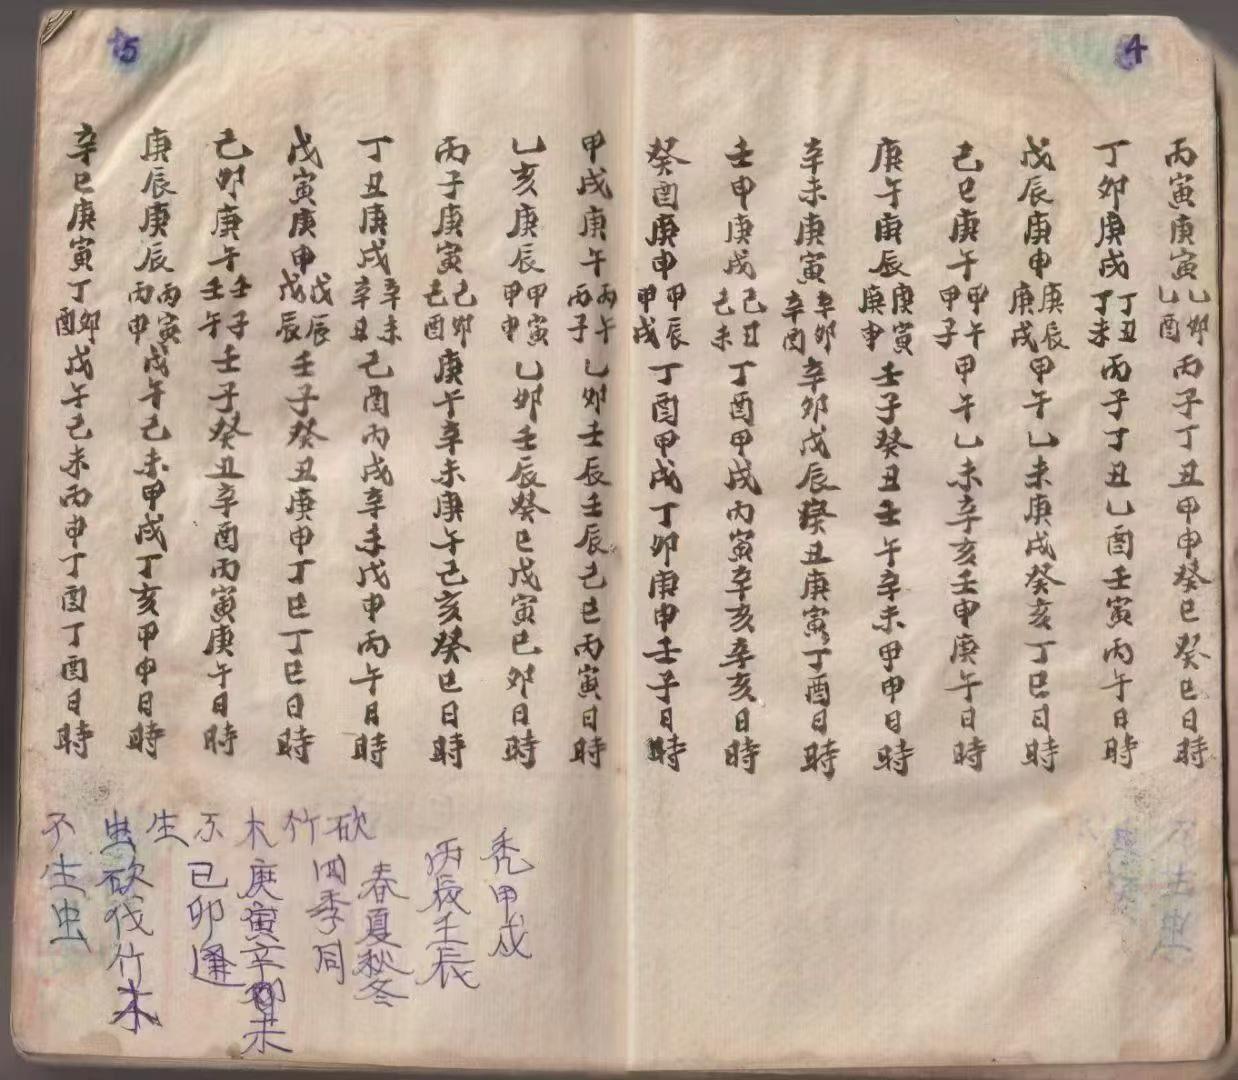 4
丙寅庚寅乙卯乙酉丙子丁丑甲申癸巳癸巳日時
丁卯庚戌丁丑丁未丙子丁丑乙酉壬寅丙午日時
戊辰庚申庚辰庚戌甲午乙未庚戌癸亥丁巳日時
己巳庚午甲午甲子甲午乙未辛亥壬申庚午日時
庚午庚辰庚寅庚申壬子癸丑壬午辛未甲申日時
辛未庚寅辛卯辛酉辛卯戊辰癸丑庚寅丁酉日時
壬申庚戌己丑己未丁酉甲戌丙寅辛亥辛亥日時
癸酉庚申甲辰甲戌丁酉甲戌丁卯庚申壬子日時
5
甲戌庚午丙午丙子乙卯壬辰壬辰己巳丙寅日時
乙亥庚辰甲寅甲申乙卯壬辰癸巳戊寅巳卯日時
丙子庚寅己卯己酉庚午辛未庚午己亥癸巳日時
丁丑庚戌辛未辛丑己酉丙戌辛未戊申丙午日時
戊寅庚申戊辰戊辰壬子癸丑庚申丁巳丁巳日時
己卯庚午壬子壬午壬子癸丑辛酉丙寅庚午日時
庚辰庚辰丙寅丙申戊午己未甲戌丁亥甲申日時
辛巳庚寅丁卯酉戊午己未丙申丁酉丁酉日時
禿甲戌
丙辰壬辰
春夏秋冬
砍竹木不生虫
四季同
庚寅辛卯木
已卯逢
砍伐竹木
不生虫
不生虫